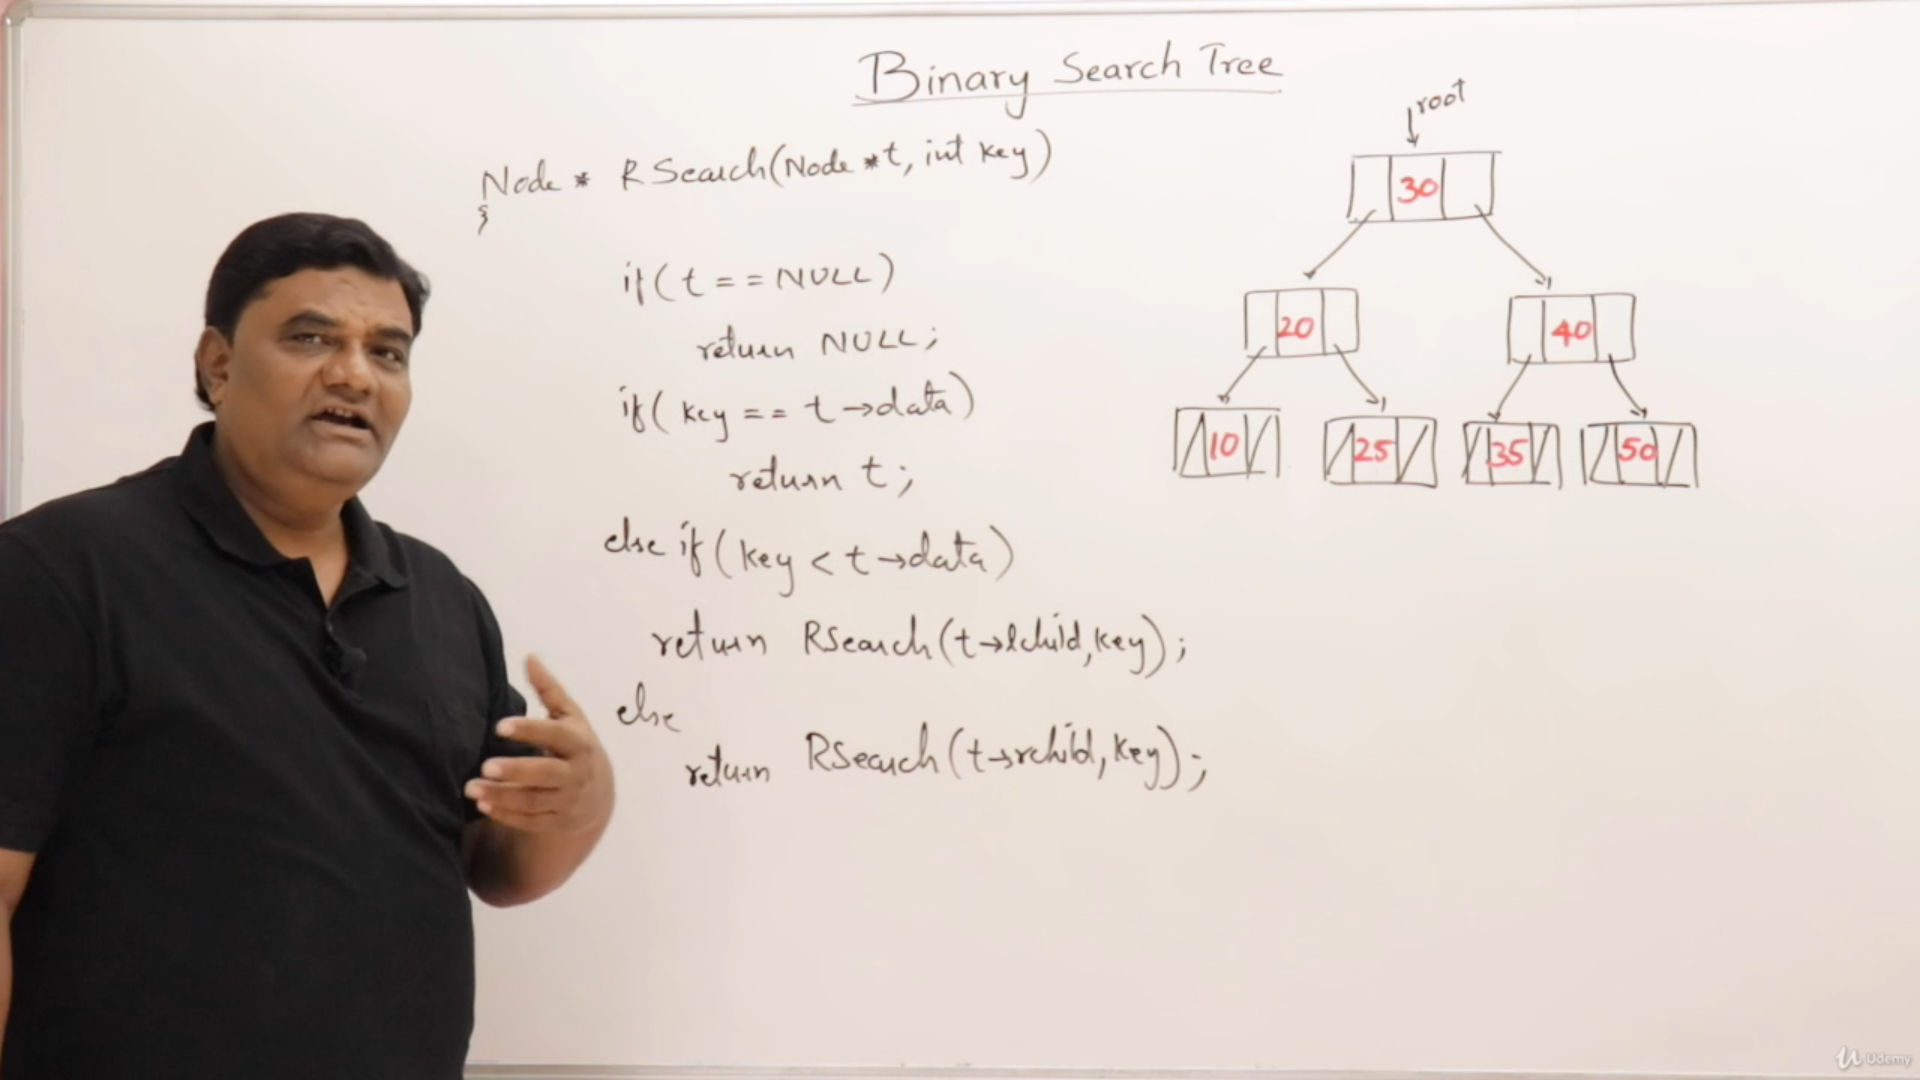 Binary Search Tree
Node * RSearch(Node *t, int key)
{
if(t == NULL)
return NULL;
if(key == t→data)
return t;
else if(key < t→data)
return RSearch(t→lchild,key);
else
return RSearch(t→rchild,key);
root
30
20
40
10
25
35
50
Udemy